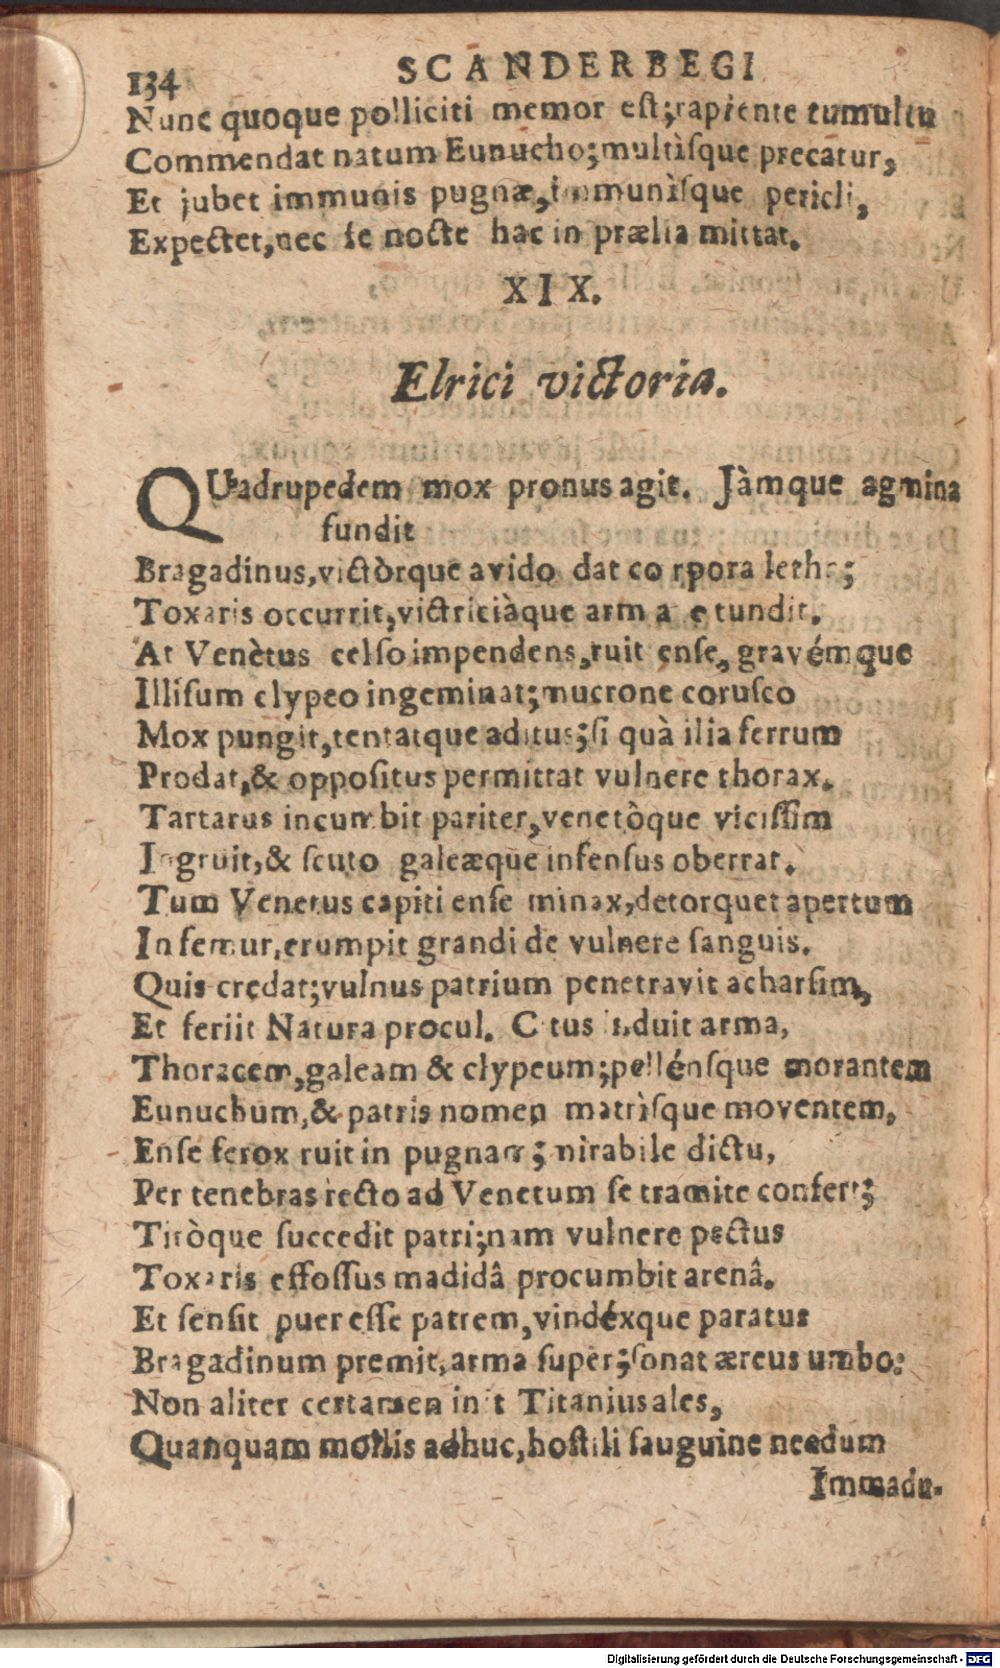 134
SCANDERBEGI
Nunc quoque polliciti memor est; rapiente tumultu
Commendat natum Eunucho; multìsque precatur,
Et jubet immunis pugnæ, immunìsque pericli,
Expectet, nec se nocte hac in prælia mittat.
XIX.
Elrici victoria.
QUadrupedem mox pronus agit. Jàmque agmina
fundit
Bragadinus, victòrque avido dat corpora letho;
Toxaris occurrit, victriciàque arma retundit.
At Venètus celso impendens, ruit ense, gravémque
Illisum clypeo ingeminat; mucrone corusco
Mox pungit, tentatque aditus; si quà ilia ferrum
Prodat, & oppositus permittat vulnere thorax.
Tartarus incumbit pariter, venetòque vicissim
Ingruit, & scuto galeæque infensus oberrat.
Tum Venetus capiti ense minax, detorquet apertum
In femur, erumpit grandi de vulnere sanguis.
Quis credat; vulnus patrium penetravit acharsim,
Et feriit Natura procul. Citus induit arma,
Thoracem, galeam & clypeum; pellénsque morantem
Eunuchum, & patris nomen matrìsque moventem,
Ense ferox ruit in pugnam; mirabile dictu,
Per tenebras recto ad Venetum se tramite confert;
Tiròque succedit patri; nam vulnere pectus
Toxaris effossus madidâ procumbit arenâ.
Et sensit puer esse patrem, vindéxque paratus
Bragadinum premit, arma super; sonat æreus umbo:
Non aliter certamen init Titanius ales,
Quanquam mollis adhuc, hostili sauguine necdum
Immadu-
Digitalisierung gefördert durch die Deutsche Forschungsgemeinschaft - DFG